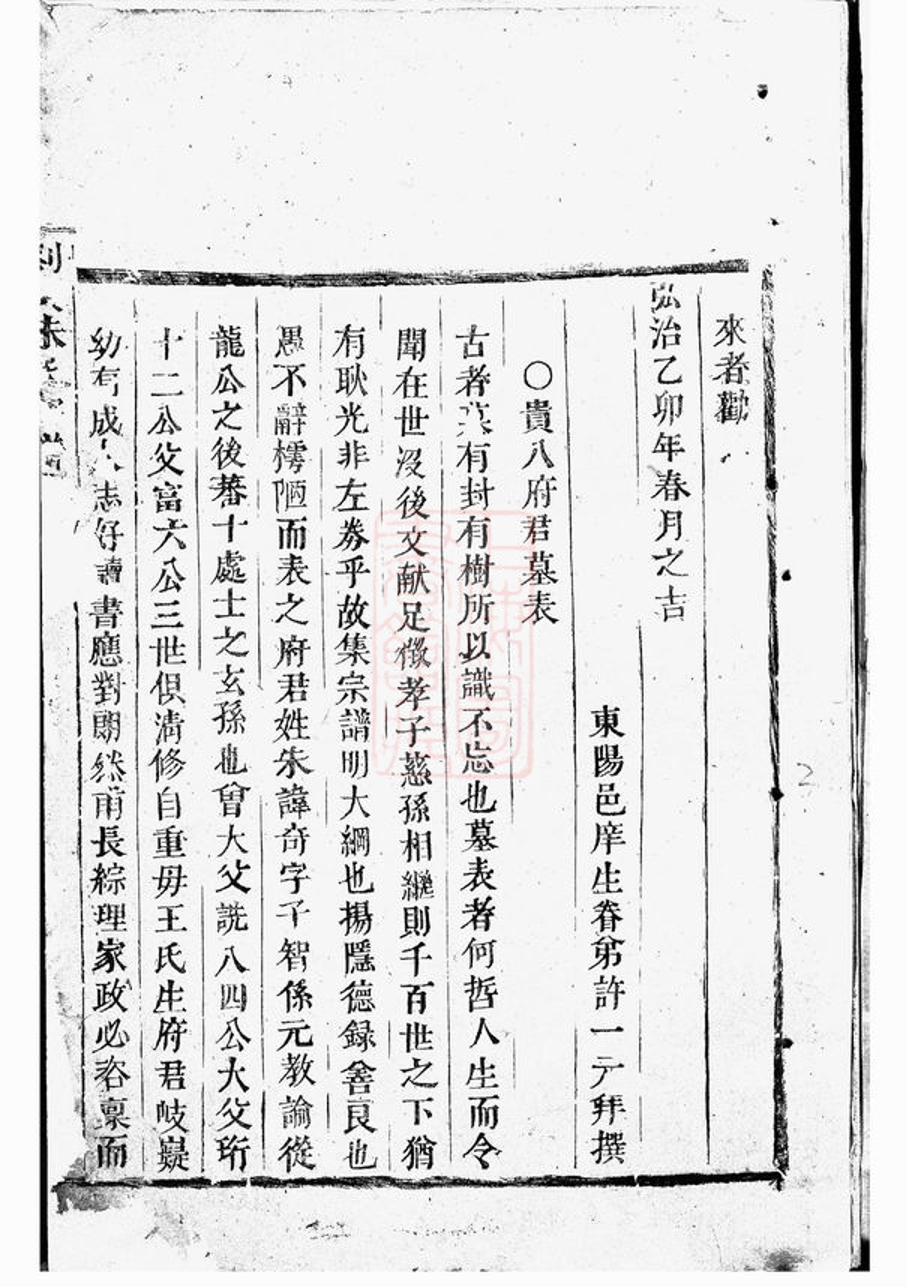 來者勸
弘治乙卯年春月之吉
東陽邑庠生眷弟許一元拜撰
○貴八府君墓表
古者墓有封有樹所以識不忘也墓表者何哲人生而令
聞在世沒後文献足徵孝子慈孫相繼則千百世之下猶
有耿光非左券乎故集宗譜明大綱也揚隱德録善良也
愚不辭樗陋而表之府君姓朱諱奇字子智係元教諭從
龍公之後蕃十處士之玄孫也曾大父詵八四公大父珩
十二公父富六公三世俱清修自重毋王氏生府君岐嶷
幼有成人志好讀書應對朗然甫長綜理家政必咨禀而